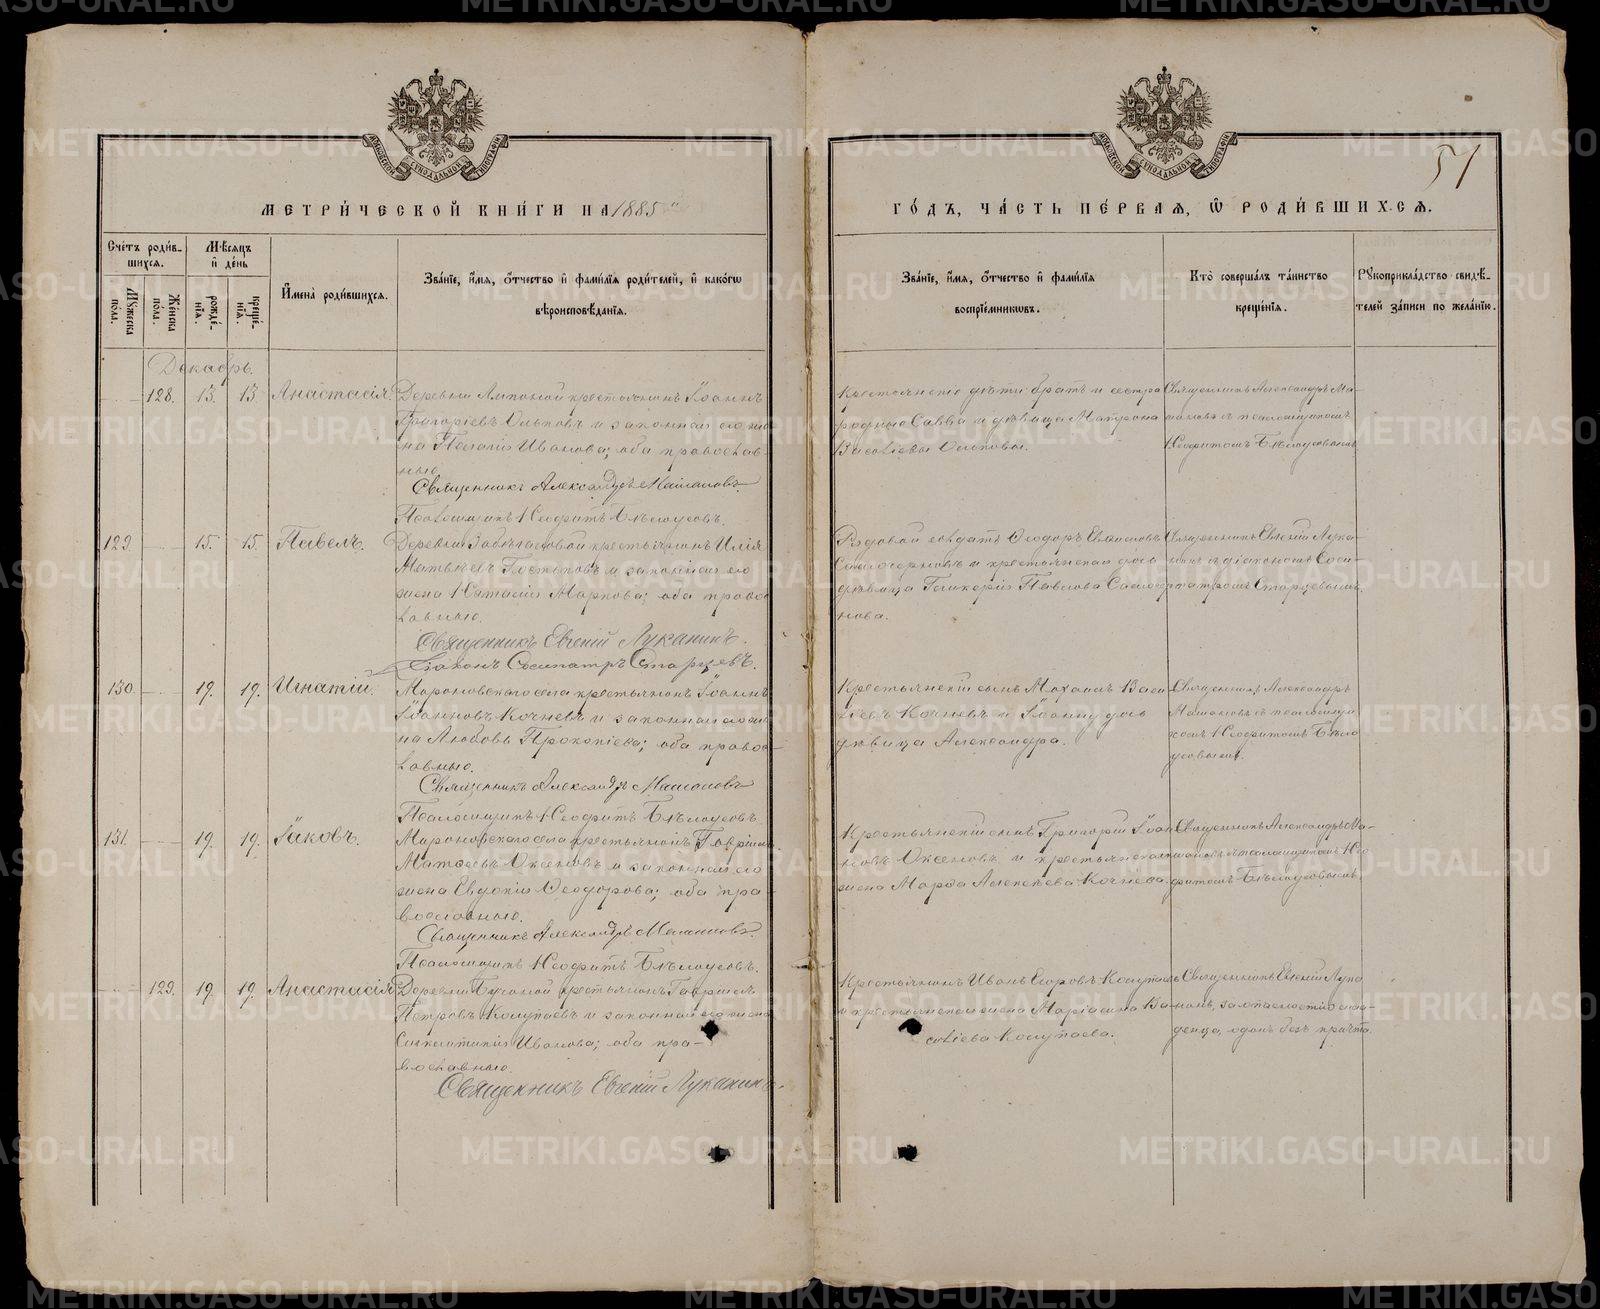 МЕТРИ́ЧЕСКОЙ КНИ́ГИ НА 1885
ГО́ДЪ, ЧА́СТЬ ПЕ́РВАЯ, Ѡ РОДИ́ВШИХСЯ.
51
Сче́тъ роди́в-
шихся.
Мѣ́сяцъ
и де́нь
Мꙋ́жеска
по́ла.
Же́нска
по́ла.
рожде́-
нїя.
креще́-
нїя.
Имена̀ роди́вшихся.
Зва́нїе, и́мя, ѻ́тчество и фами́лїя роди́телей, и како́гѡ
вѣроисповѣ́данїя.
Зва́нїе, и́мя, ѻ́тчество и фами́лїя
воспрїе́мникѡвъ.
Кто̀ соверша́лъ та́инство
креще́нїя.
Рꙋкоприкла́дство свидѣ́-
телей за́писи по жела́нїю.
Декабрь.
128. 13. 13 Анастасія.
Деревни крестьянинъ Іоаннъ
Григорьевъ Осиповъ и законная его же
на Пелагія Иванова; оба православ-
ные.
Священникъ Александръ
Псаломщикъ Неофитъ Бѣлоусовъ.
Крестьянскіе дѣти: братъ и сестра
родные Савва и дѣвица Матрона
Васильевы Осиповы.
Священникъ Александръ Ма-
съ псаломщикомъ
Неофитомъ Бѣлоусовымъ
129. 15. 15. Павелъ.
Деревни крестьянинъ Илія
Матвѣевъ и законная его
жена Маркова; оба право-
славные.
Священникъ Евгеній Луканинъ.
Діаконъ Сосипатръ Старцевъ.
Рядовой солдатъ Ѳеодоръ
и крестьянская дочь
дѣвица Гликерія Павлова
нова.
Священникъ Евгеній Лука-
нинъ съ діакономъ Соси-
патромъ Старцевымъ.
130. 19. 19. Игнатій.
Мироновскаго села крестьянинъ Іоаннъ
Іоанновъ Кочневъ и законная его же
на Любовь Прокопіева; оба право-
славные.
Священникъ Александръ
Псаломщикъ Неофитъ Бѣлоусовъ.
Крестьянскій сынъ Васи
льевъ Кочневъ и дочь
дѣвица Александра.
Священникъ Александръ
съ псаломщи
комъ Неофитомъ Бѣло
усовымъ.
131. 19. 19. Іаковъ.
Мироновскаго села крестьянинъ Гавріилъ
и законная его
жена Евдокія Ѳеодорова; оба пра-
вославные.
Священникъ Александръ
Псаломщикъ Неофитъ Бѣлоусовъ.
Крестьянскій сынъ Григорій Іоан
новъ и крестьянская
жена Марѳа Алексѣева Кочнева.
Священникъ Александръ Ма-
съ псаломщикомъ Нео
фитомъ Бѣлоусовымъ.
129. 19. 19. Анастасія
Деревни крестьянинъ Гавріилъ
Петровъ Колупаевъ и законная его жена
Иванова; оба пра-
вославные.
Священникъ Евгеній Луканинъ.
Крестьянинъ Иванъ Егоровъ Колупаевъ
и крестьянская жена Ва-
сильева Колупаева.
Священникъ Евгеній Лука
нинъ, за опасностію мла-
денца, одинъ безъ причта.
METRIKI.GASO-URAL.RU